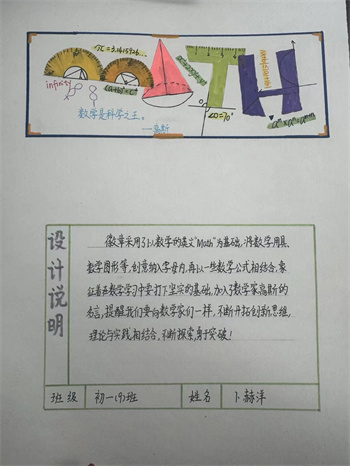 π=3.1415926...
infinity
∞
数学是科学之王。
——高斯
∠O=70°
设计说明
徽章采用了以数学的英文"Math"为基础,将数学用具、
数学图形等,创意纳入字母内,再以一些数学公式相结合,象
征着在数学学习中要打下坚实的基础,加入了数学家高斯的
名言,提醒我们要向数学家们一样,不断开拓创新思维,
理论与实践相结合,不断探索,勇于突破!
班级 初一(9)班 姓名 卜赫洋